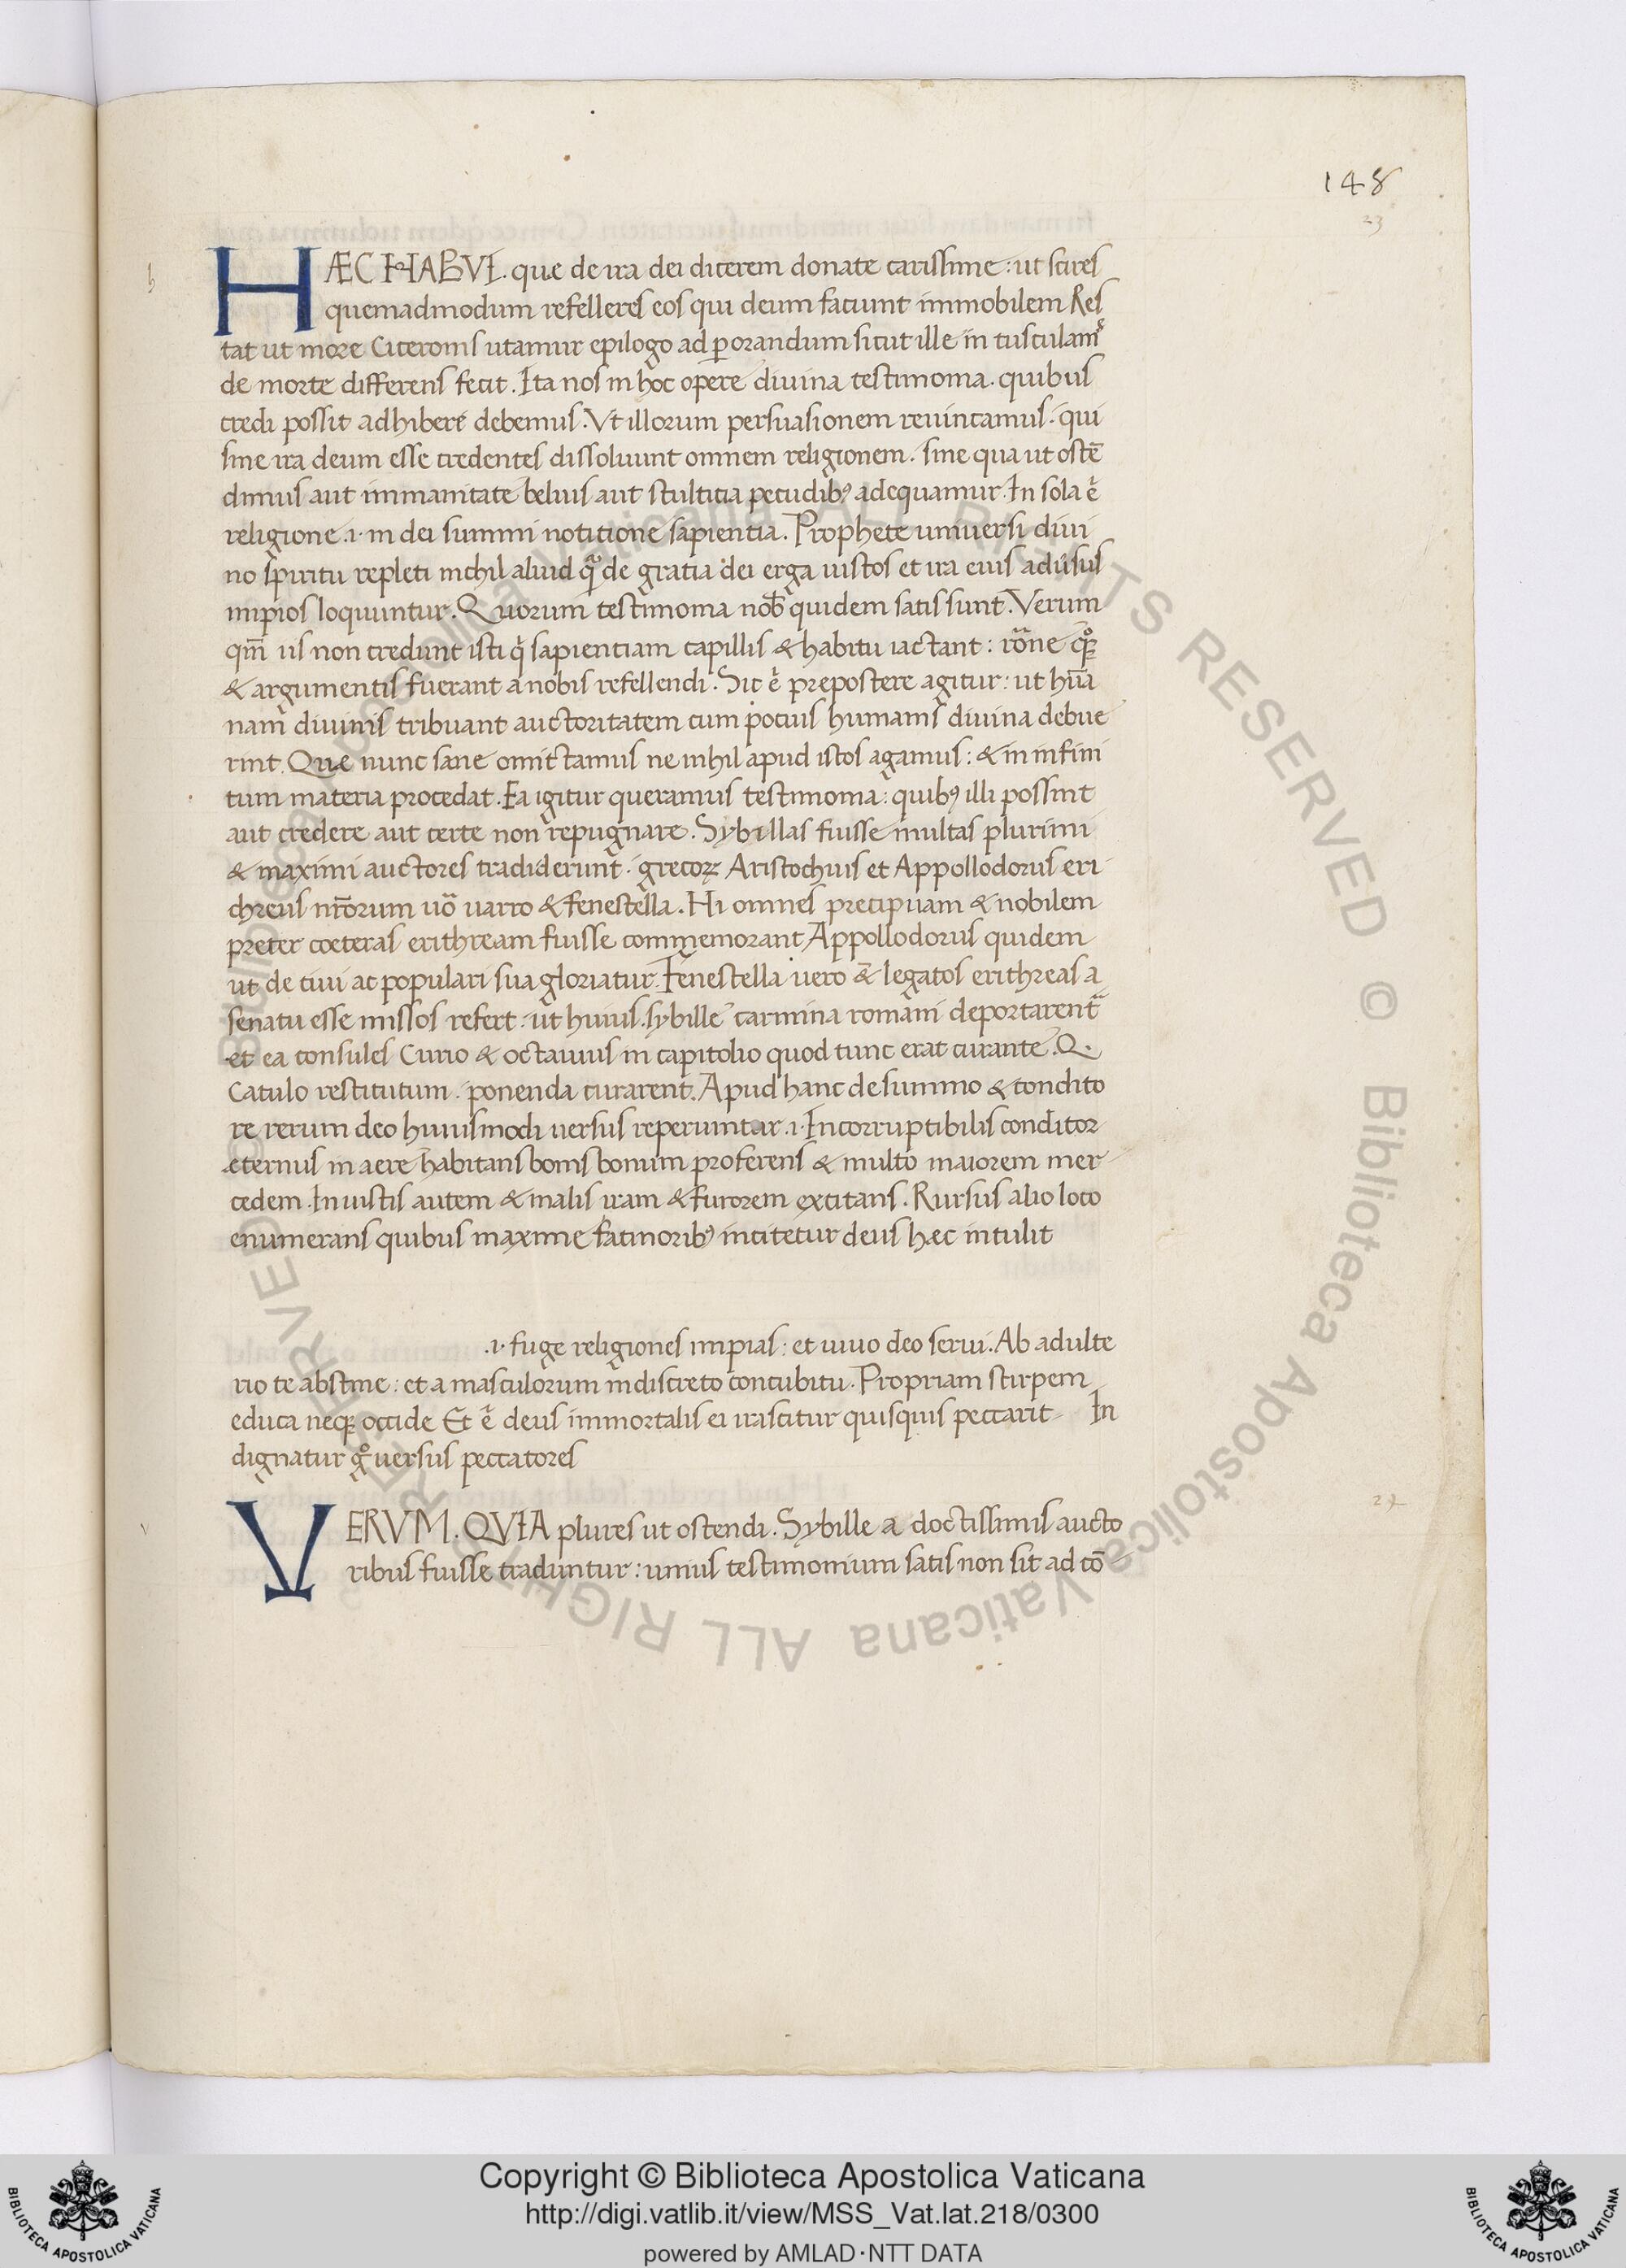 148
23
h
HÆC HABVI. que de ira dei dicerem donate carissime: ut scires
quemadmodum refelleres eos qui deum faciunt immobilem Res
tat ut more Ciceronis utamur epilogo ad ꝑorandum sicut ille in tusculanis
de morte differens fecit. Ita nos in hoc opere divina testimonia. quibus
credi possit adhibere debemus. Vt illorum persuasionem revincamus. qui
sine ira deum esse credentes dissoluunt omnem religionem. sine qua ut ostē
dimus aut immanitate beluis aut stultitia pecudibꝰ adequamur. In sola .ē
religione .i. in dei summi notitione sapientia. Prophete universi divi
no spiritu repleti nichil aliud qͣ de gratia dei erga iustos et ira eius adūsus
impios loquuntur. Quorum testimonia nob̄ quidem satis sunt. Verum
qm̄ iis non credunt isti qͥ sapientiam capillis & habitu iactant: rōne qͦꝗ
& argumentis fuerant a nobis refellendi. Sic .ē prepostere agitur: ut hūa
nam divinis tribuant auctoritatem cum pocius humanis divina debue
rint. Que nunc sane omictamus ne nihil apud istos agamus: & in infini
tum materia procedat. Ea igitur queramus testimonia: quibꝰ illi possint
aut credere aut certe non repugnare. Sybillas fuisse multas plurimi
& maximi auctores tradiderunt. grecoꝝ Aristochius et Appollodorus eri
chreus nr̄orum uō varro & fenestella. Hi omnes precipuam & nobilem
preter coeteras erithream fuisse commemorant Appollodorus quidem
ut de civi ac populari sua gloriatur. Fenestella vero & legatos erithreas a
senatu esse missos refert. ut huius sybille carmina romani deportarent
et ea consules Curio & octavius in capitolio quod tunc erat curante .Q.
Catulo restitutum. ponenda curarent. Apud hanc de summo & condito
re rerum deo huiusmodi versus reperiuntur .i. Incorruptibilis conditor
eternus in aere habitans bonis bonum proferens & multo maiorem mer
cedem. Iniustis autem & malis iram & furorem excitans. Rursus alio loco
enumerans quibus maxime facinoribꝰ incitetur deus hæc intulit
.i. fuge religiones impias: et vivo deo servi. Ab adulte
rio te abstine: et a masculorum indiscreto concubitu. Propriam stirpem
educa neqꝫ occide Et .ē deus immortalis ei irascitur quisquis peccarit In
dignatur gͦ versus peccatores
27
v
VERVM. QVIA plures ut ostendi. Sybille a doctissimis aucto
ribus fuisse traduntur: unius testimonium satis non sit ad cō
© Biblioteca Apostolica Vaticana ALL RIGHTS RESERVED © Biblioteca Apostolica Vaticana ALL RIGHTS RESERVED
BIBLIOTECA APOSTOLICA VATICANA
Copyright © Biblioteca Apostolica Vaticana
http://digi.vatlib.it/view/MSS_Vat.lat.218/0300
powered by AMLAD·NTT DATA
BIBLIOTECA APOSTOLICA VATICANA